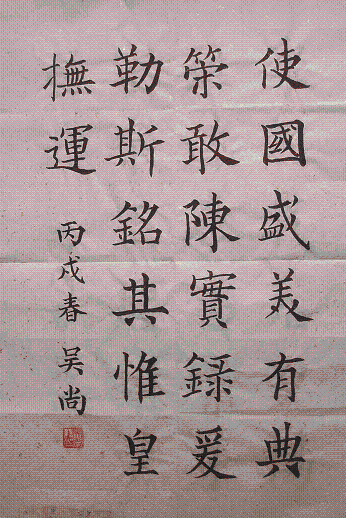 使國盛美有典
策敢陳實録爰
勒斯銘其惟皇
撫運
丙戌春吴尚